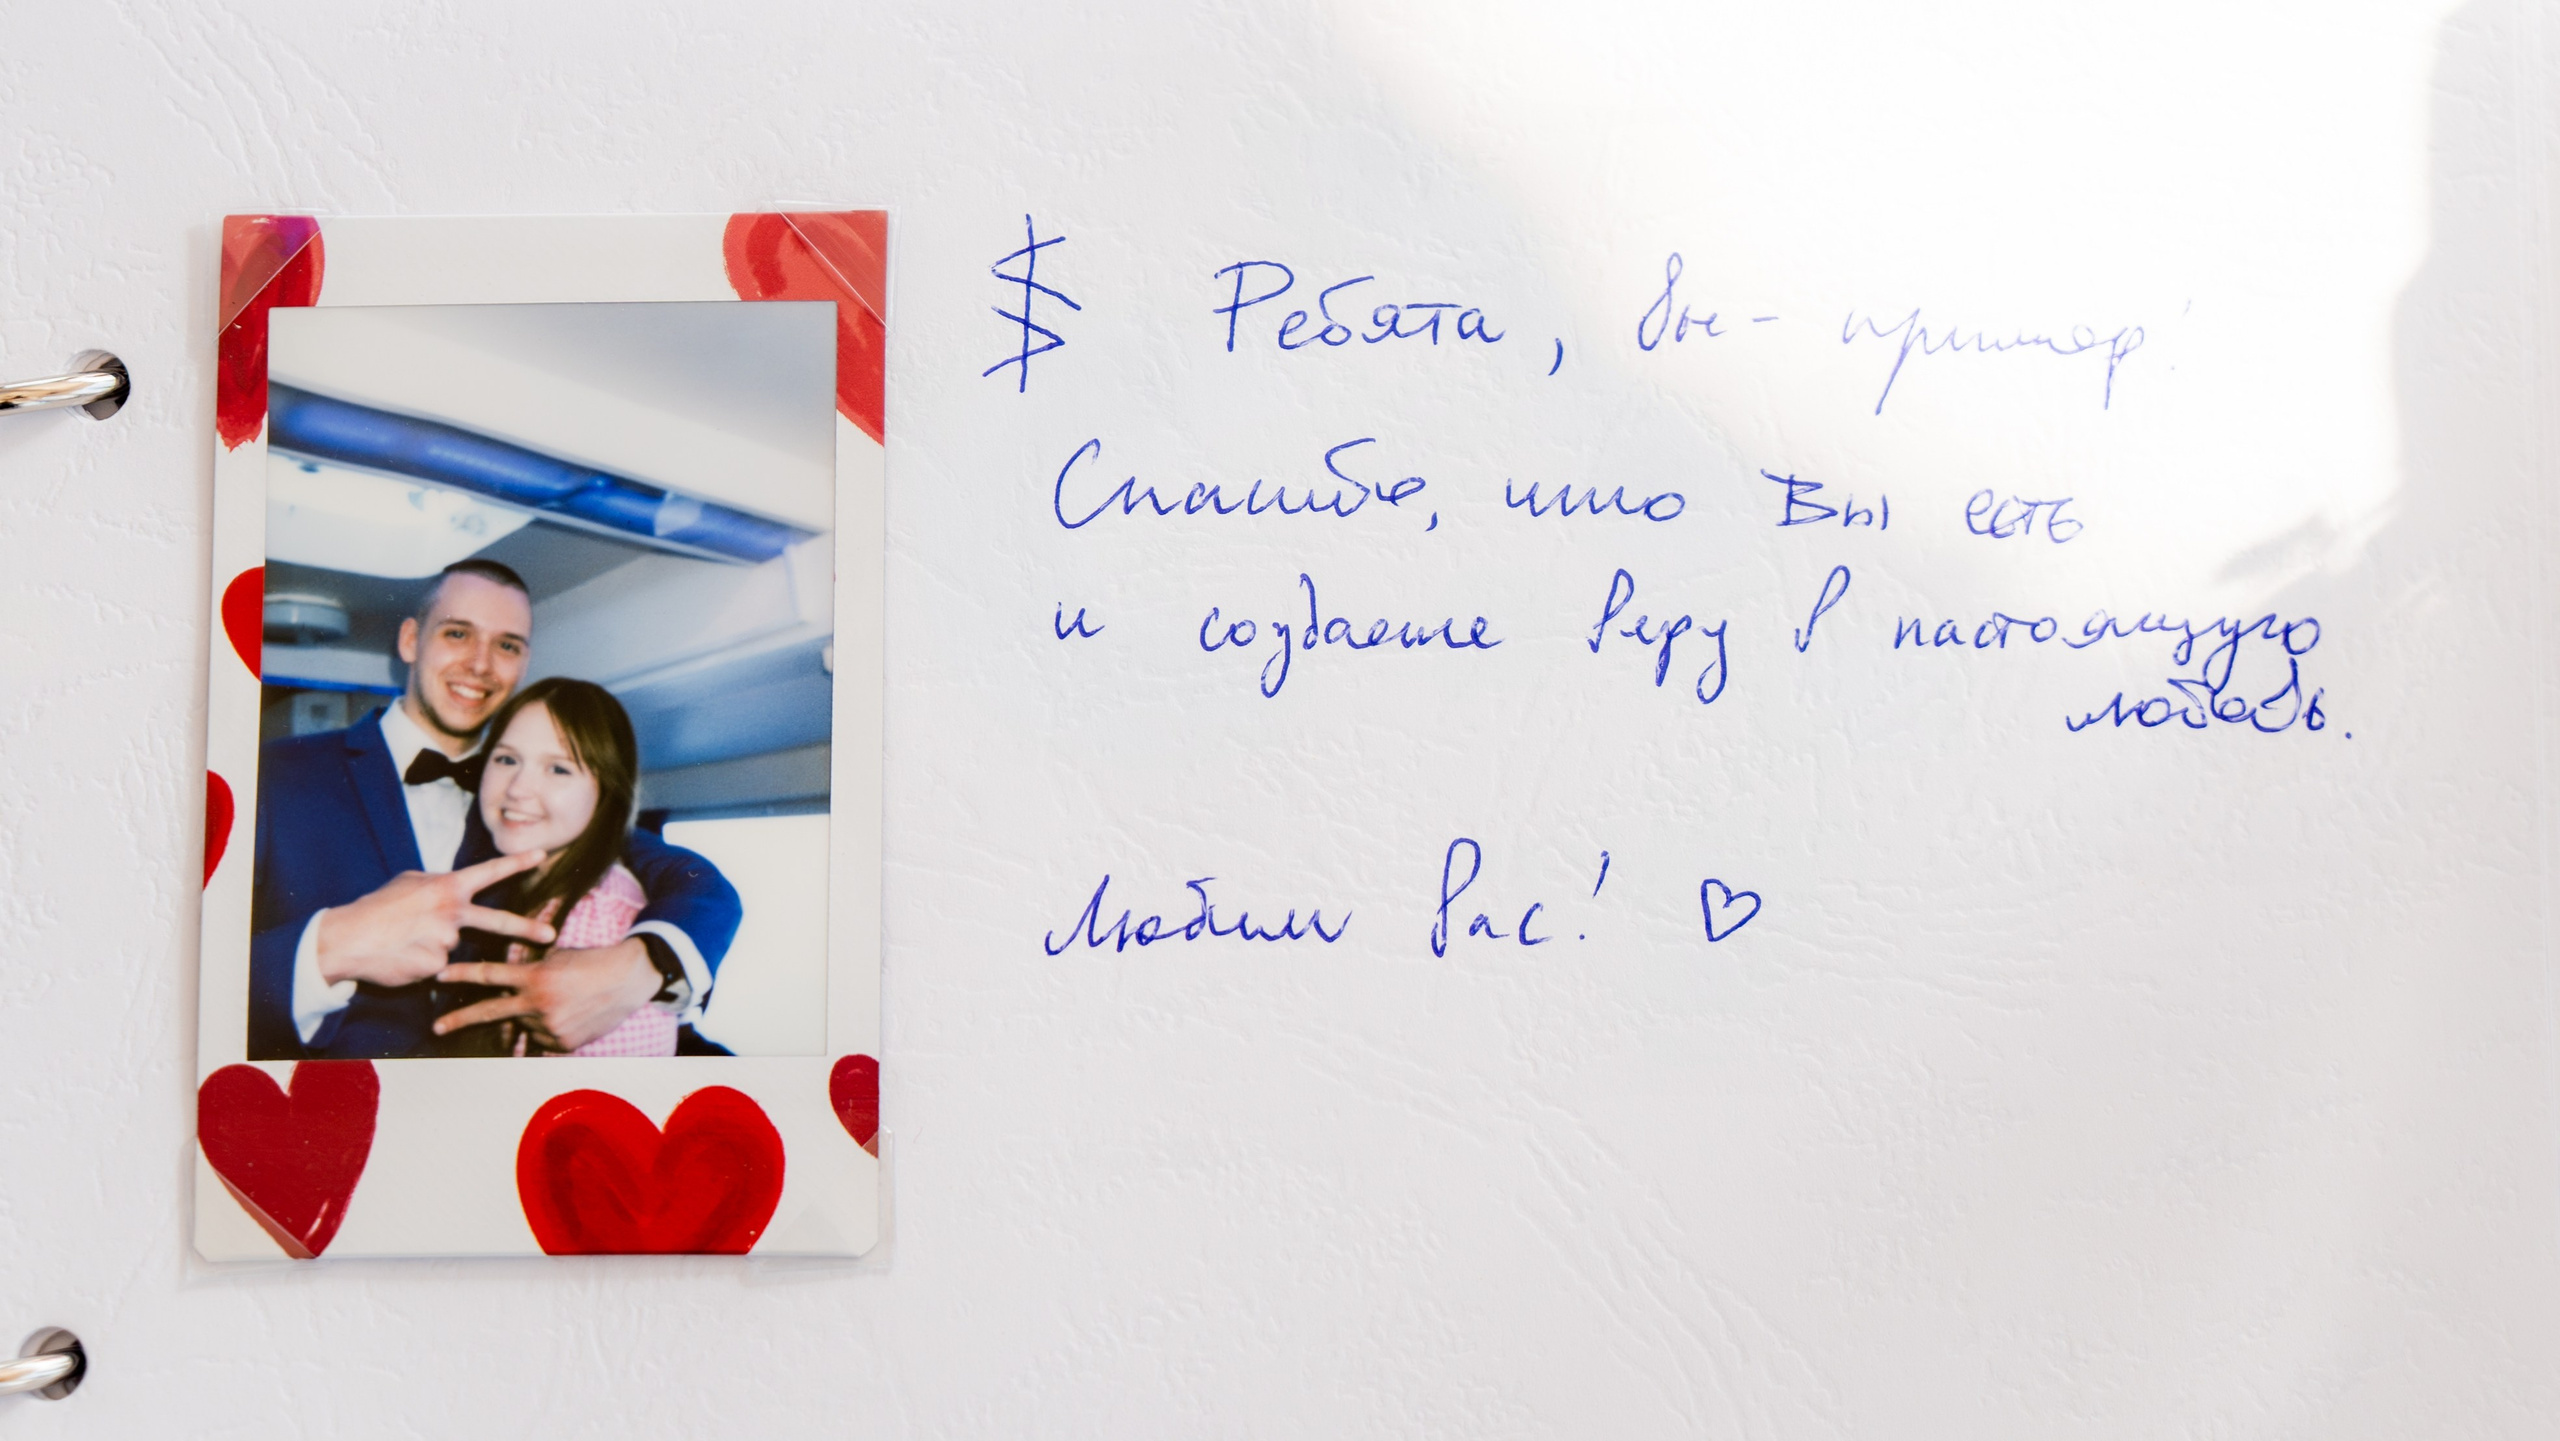 Ребята, вы - пример!
Спасибо, что Вы есть
и создаете веру в настоящую
любовь.
Любим вас! ♡